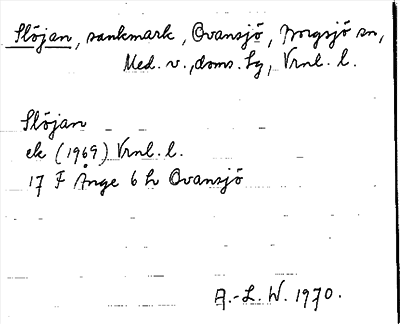 Slöjan, sankmark, Ovansjö, Borgsjö sn,
Med. v., doms. Lg, Vrnl. l.
Slöjan
ek (1969) Vrnl. l.
17 F Ånge 6 h Ovansjö
A.-L. W. 1970.